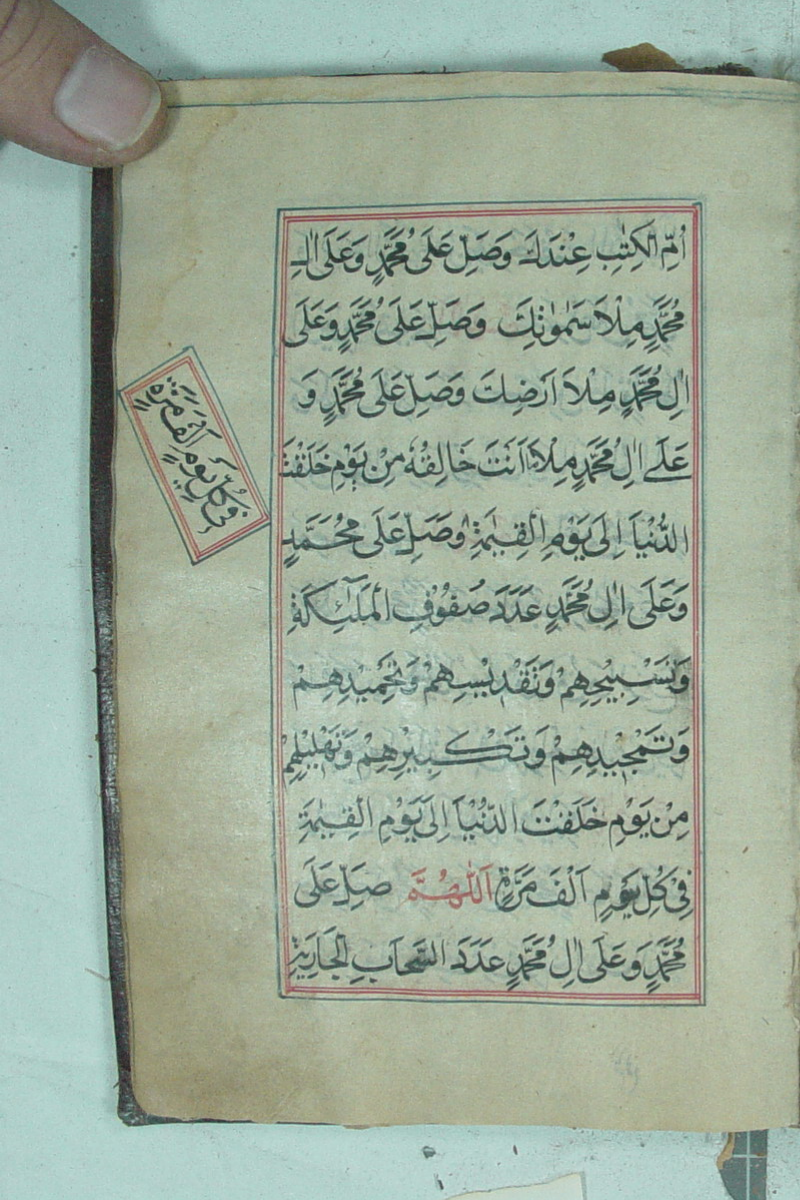 اُمِّ الْكِتٰبِ عِنْدَكَ وَصَلِّ عَلَى مُحَمَّدٍ وَعَلَى اٰلِ
مُحَمَّدٍ مِلْاَ سَمٰوٰتِكَ وَصَلِّ عَلَى مُحَمَّدٍ وَعَلَى
اٰلِ مُحَمَّدٍ مِلْاَ اَرْضِكَ وَصَلِّ عَلَى مُحَمَّدٍ وَ
عَلَى اٰلِ مُحَمَّدٍ مِلْاَ مَا اَنْتَ خَالِقُهُ مِنْ يَوْمِ خَلَقْتَ
الدُّنْيَا اِلَى يَوْمِ الْقِيٰمَةِ وَصَلِّ عَلَى مُحَمَّدٍ
وَعَلَى اٰلِ مُحَمَّدٍ عَدَدَ صُفُوْفِ الْمَلٰٓئِكَةِ
وَتَسْبِيْحِهِمْ وَتَقْدِيْسِهِمْ وَتَحْمِيْدِهِمْ
وَتَمْجِيْدِهِمْ وَتَكْبِيْرِهِمْ وَتَهْلِيْلِهِمْ
مِنْ يَوْمِ خَلَقْتَ الدُّنْيَا اِلَى يَوْمِ الْقِيٰمَةِ
فِىْ كُلِّ يَوْمٍ اَلْفَ مَرَّةٍ اَللّٰهُمَّ صَلِّ عَلَى
مُحَمَّدٍ وَعَلَى اٰلِ مُحَمَّدٍ عَدَدَ السَّحَابِ الْجَارِيَةِ
فِىْ كُلِّ يَوْمٍ اَلْفَ مَرَّةٍ